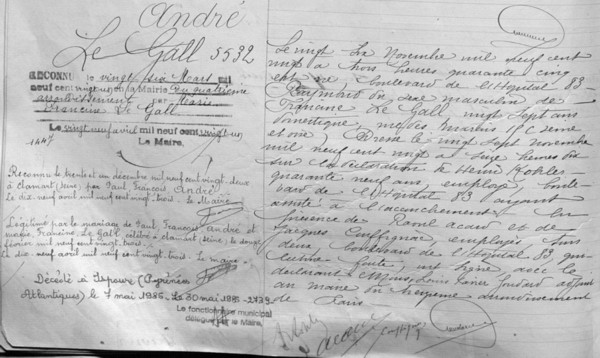 André
Le Gall 5532
RECONNU le vingt six Mars mil
neuf cent vingt un à la Mairie du quatrième
arrondissement par Marie
Francine Le Gall
Le vingt neuf avril mil neuf cent vingt un
1447 Le Maire,
Reconnu le trente et un décembre mil neuf cent vingt deux
à Clamart (Seine) par Paul François André
Le dix neuf avril mil neuf cent vingt trois. Le Maire
Légitimé par le mariage de Paul François André et
Marie Francine Le Gall célébré à Clamart (Seine), le
février mil neuf cent vingt trois.
Le dix neuf avril mil neuf cent vingt trois. Le maire
Décédé à (Pyrénées
Atlantiques) le 7 mai 1985. Le 30 mai 1985 -
Le fonctionnaire municipal
délégué par le Maire,
Le vingt six Novembre mil neuf cent
vingt à trois heures quarante cinq
est né, boulevard de l'Hôpital 83
du sexe masculin de
Francine Le Gall vingt sept ans
domestique, rue des Marais
Dressé le vingt sept novembre
mil neuf cent vingt à seize heures
sur la déclaration de Henri
quarante neuf ans, employé, boule-
vard de l'Hôpital 83 ayant
assisté à l'accouchement. En
présence de Raoul et de
Jacques employés tous
deux, boulevard de l'Hôpital 83 qui
lecture faite ont signé avec le
déclarant et Nous, Louis adjoint
au maire du treizième arrondissement
de Paris